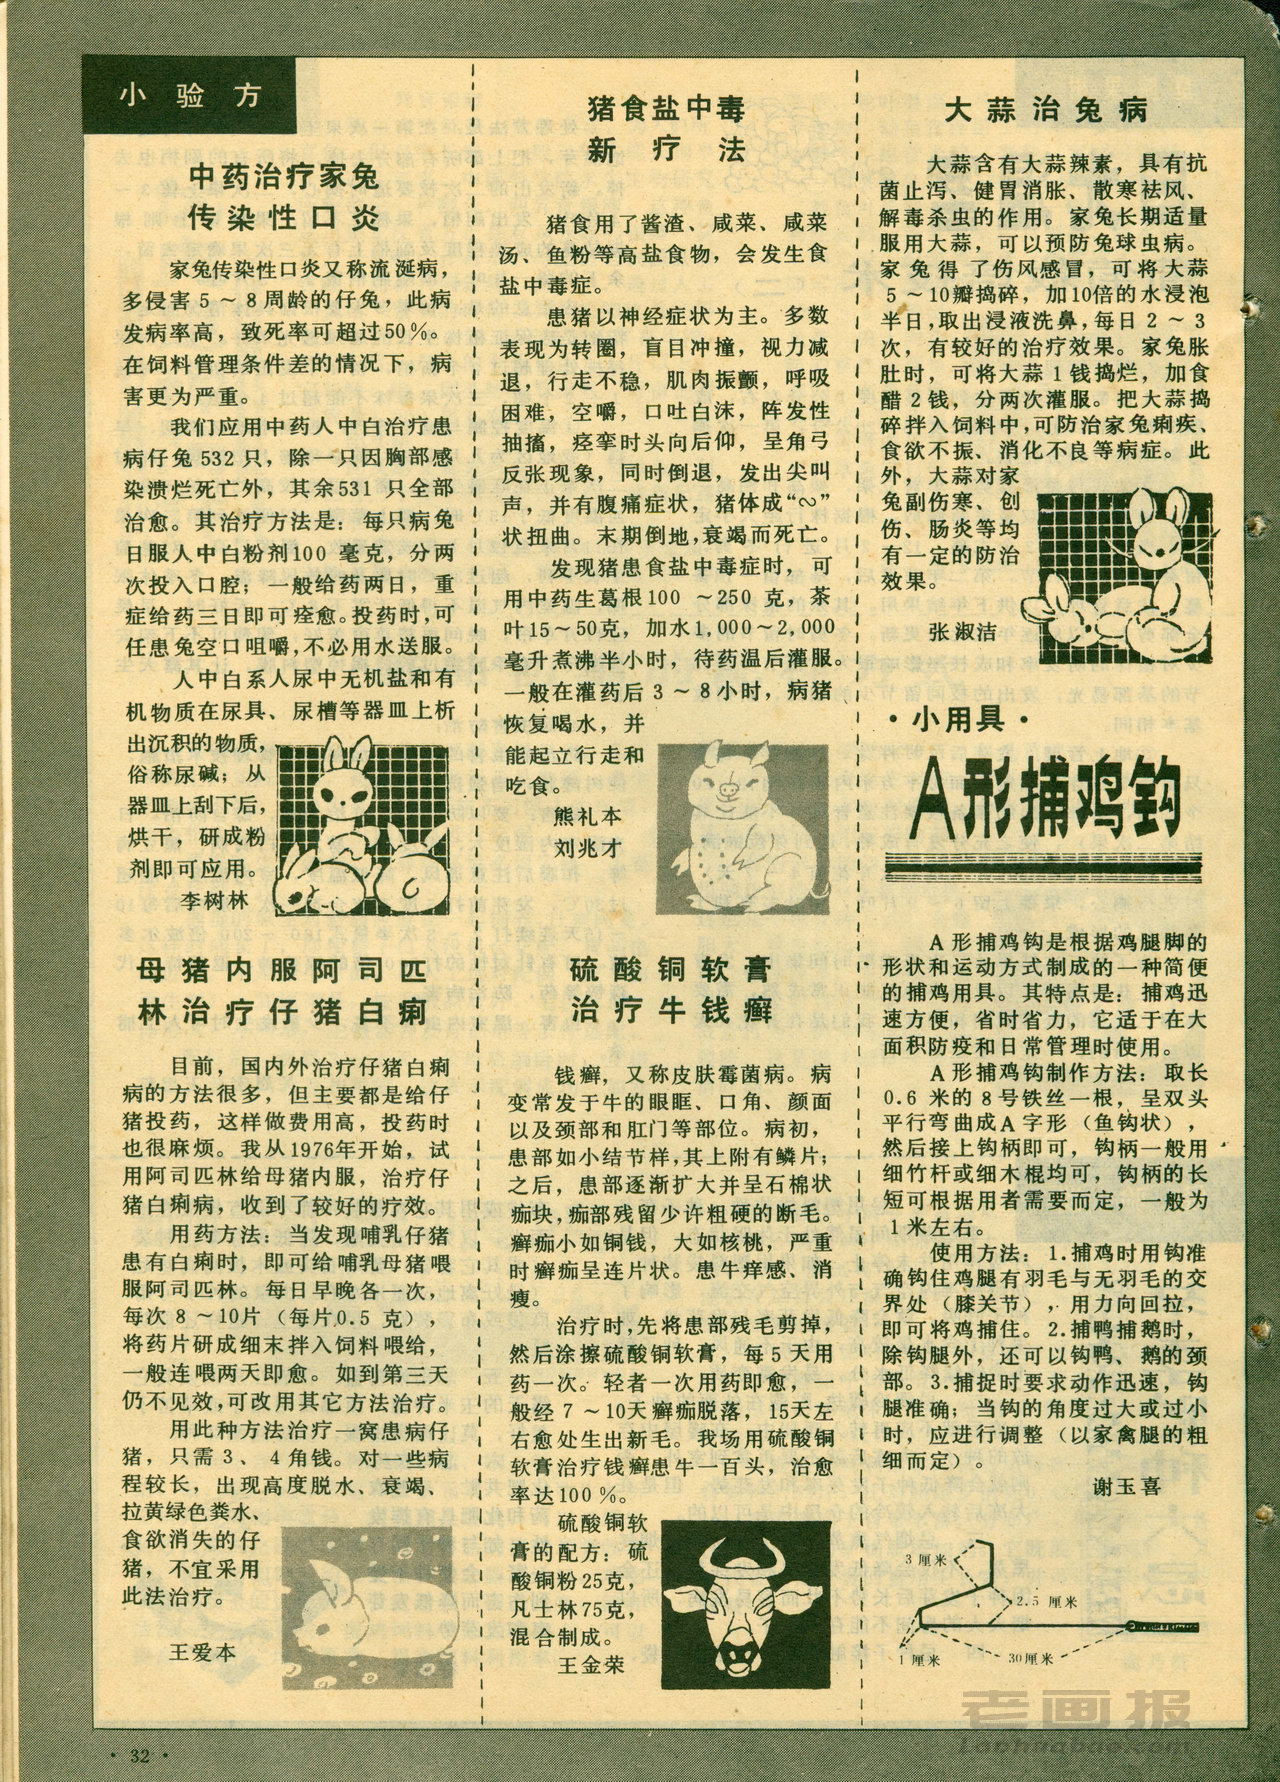 小验方
中药治疗家兔
传染性口炎
家兔传染性口炎又称流涎病，
多侵害5～8周龄的仔兔，此病
发病率高，致死率可超过50％。
在饲料管理条件差的情况下，病
害更为严重。
我们应用中药人中白治疗患
病仔兔532只，除一只因胸部感
染溃烂死亡外，其余531只全部
治愈。其治疗方法是：每只病兔
日服人中白粉剂100毫克，分两
次投入口腔；一般给药两日，重
症给药三日即可痊愈。投药时，可
任患兔空口咀嚼，不必用水送服。
人中白系人尿中无机盐和有
机物质在尿具、尿槽等器皿上析
出沉积的物质，
俗称尿碱；从
器皿上刮下后，
烘干，研成粉
剂即可应用。
李树林
母猪内服阿司匹
林治疗仔猪白痢
目前，国内外治疗仔猪白痢
病的方法很多，但主要都是给仔
猪投药，这样做费用高，投药时
也很麻烦。我从1976年开始，试
用阿司匹林给母猪内服，治疗仔
猪白痢病，收到了较好的疗效。
用药方法：当发现哺乳仔猪
患有白痢时，即可给哺乳母猪喂
服阿司匹林。每日早晚各一次，
每次8～10片（每片0.5克），
将药片研成细末拌入饲料喂给，
一般连喂两天即愈。如到第三天
仍不见效，可改用其它方法治疗。
用此种方法治疗一窝患病仔
猪，只需3、4角钱。对一些病
程较长，出现高度脱水、衰竭、
拉黄绿色粪水、
食欲消失的仔
猪，不宜采用
此法治疗。
王爱本
猪食盐中毒
新疗法
猪食用了酱渣、咸菜、咸菜
汤、鱼粉等高盐食物，会发生食
盐中毒症。
患猪以神经症状为主。多数
表现为转圈，盲目冲撞，视力减
退，行走不稳，肌肉振颤，呼吸
困难，空嚼，口吐白沫，阵发性
抽搐，痉挛时头向后仰，呈角弓
反张现象，同时倒退，发出尖叫
声，并有腹痛症状，猪体成“∽”
状扭曲。末期倒地，衰竭而死亡。
发现猪患食盐中毒症时，可
用中药生葛根100～250克，茶
叶15～50克，加水1,000～2,000
毫升煮沸半小时，待药温后灌服。
一般在灌药后3～8小时，病猪
恢复喝水，并
能起立行走和
吃食。
熊礼本
刘兆才
硫酸铜软膏
治疗牛钱癣
钱癣，又称皮肤霉菌病。病
变常发于牛的眼眶、口角、颜面
以及颈部和肛门等部位。病初，
患部如小结节样，其上附有鳞片；
之后，患部逐渐扩大并呈石棉状
痂块，痂部残留少许粗硬的断毛。
癣痂小如铜钱，大如核桃，严重
时癣痂呈连片状。患牛痒感、消
瘦。
治疗时，先将患部残毛剪掉，
然后涂擦硫酸铜软膏，每5天用
药一次。轻者一次用药即愈，一
般经7～10天癣痂脱落，15天左
右愈处生出新毛。我场用硫酸铜
软膏治疗钱癣患牛一百头，治愈
率达100％。
硫酸铜软
膏的配方：硫
酸铜粉25克，
凡士林75克，
混合制成。
王金荣
大蒜治兔病
大蒜含有大蒜辣素，具有抗
菌止泻、健胃消胀、散寒祛风、
解毒杀虫的作用。家兔长期适量
服用大蒜，可以预防兔球虫病。
家兔得了伤风感冒，可将大蒜
5～10瓣捣碎，加10倍的水浸泡
半日，取出浸液洗鼻，每日2～3
次，有较好的治疗效果。家兔胀
肚时，可将大蒜1钱捣烂，加食
醋2钱，分两次灌服。把大蒜捣
碎拌入饲料中，可防治家兔痢疾、
食欲不振、消化不良等病症。此
外，大蒜对家
兔副伤寒、创
伤、肠炎等均
有一定的防治
效果。
张淑洁
·小用具·
A形捕鸡钩
A形捕鸡钩是根据鸡腿脚的
形状和运动方式制成的一种简便
的捕鸡用具。其特点是：捕鸡迅
速方便，省时省力，它适于在大
面积防疫和日常管理时使用。
A形捕鸡钩制作方法：取长
0.6米的8号铁丝一根，呈双头
平行弯曲成A字形（鱼钩状），
然后接上钩柄即可，钩柄一般用
细竹杆或细木棍均可，钩柄的长
短可根据用者需要而定，一般为
1米左右。
使用方法：1.捕鸡时用钩准
确钩住鸡腿有羽毛与无羽毛的交
界处（膝关节），用力向回拉，
即可将鸡捕住。2.捕鸭捕鹅时，
除钩腿外，还可以钩鸭、鹅的颈
部。3.捕捉时要求动作迅速，钩
腿准确；当钩的角度过大或过小
时，应进行调整（以家禽腿的粗
细而定）。
谢玉喜
3厘米
2.5厘米
1厘米
30厘米
·32·
老画报
Laohuabao.com